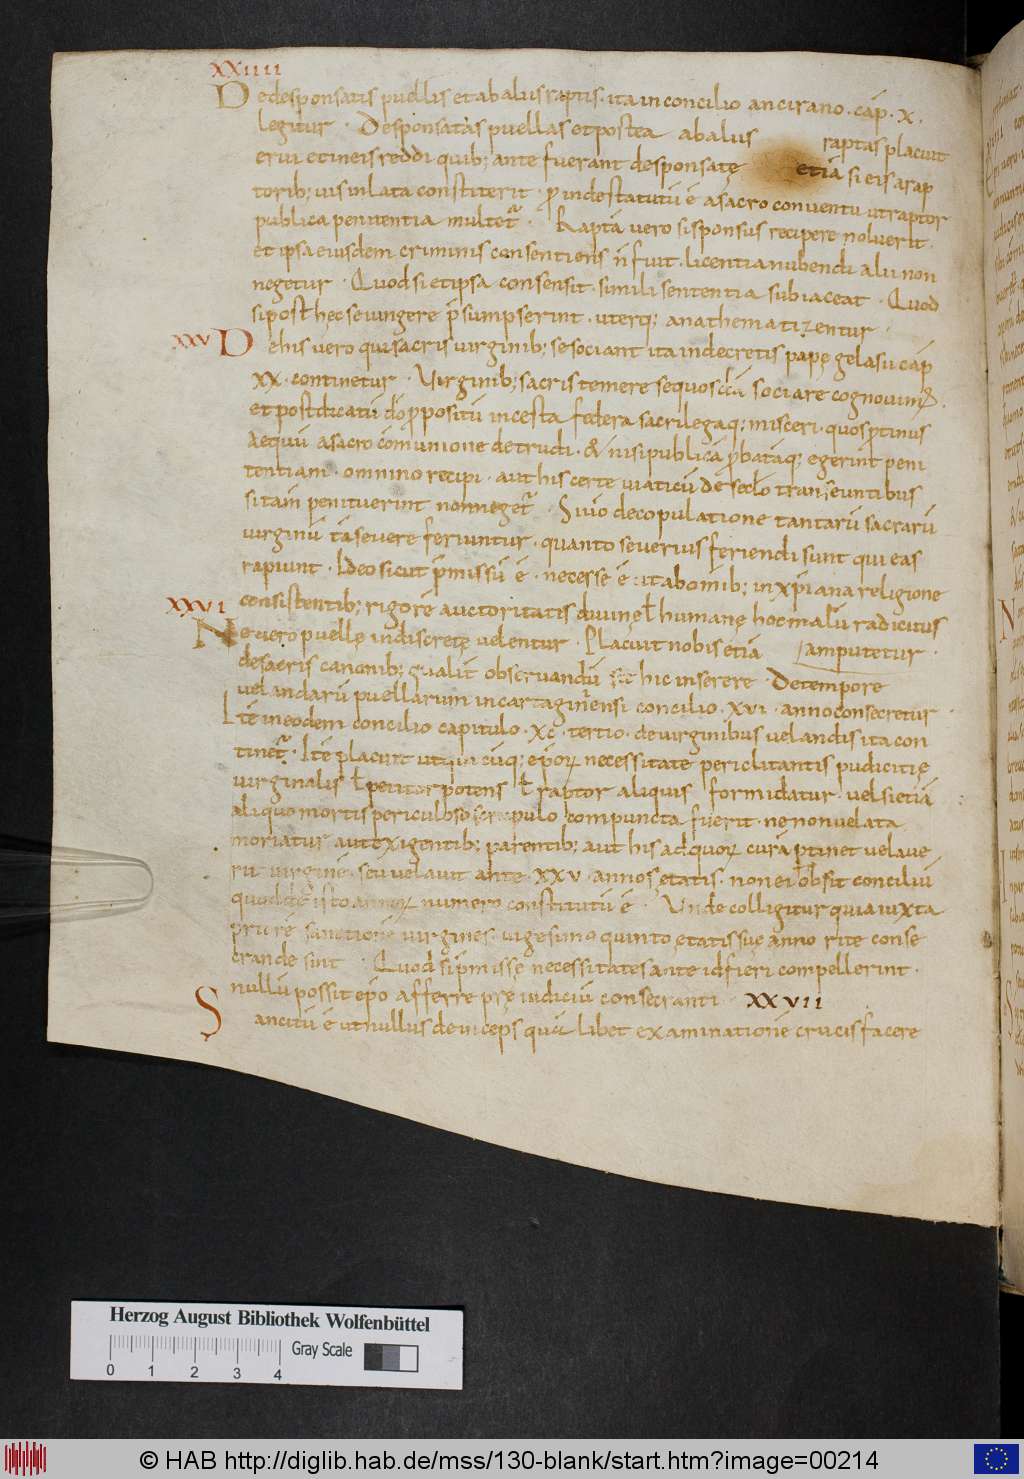 XXIIII
De desponsatis puellis et ab aliis raptis · ita in concilio ancirano · cap̄ · X ·
legitur · Desponsatas puellas et postea ab aliis raptas placuit
erui et in eis reddi quib; ante fuerant desponsatę etiā si eis a rap
torib; uis inlata constiterit · ꝓinde statutū ē a sacro conuentu ut raptor
publica penitentia multet᷑ · Raptā uero si sponsus recipere noluerit ·
et ipsa eiusdem criminis consentiens n̄ fuit · licentia nubendi alii non
negetur · Quod si et ipsa consensit · simili sententia subiaceat · Quod
si post hęc se iungere p̄sumpserint · uterq; anathematizentur ·
XXV De his uero qui sacris uirginib; se sociant ita in decretis papę gelasii cap̄
XX · continetur · Virginib; sacris temere se quosdā sociare cognouim᷒ ·
et post dicatū dō ꝓpositū incesta federa sacrilegaq; misceri · quos ꝓtinus
Aequū a sacro cōmunione detrudi · & nisi publicā ꝓbatāq; egerint peni
tentiam · omnino recipi · aut his certe uiaticū de sec̄lo transeuntibus
si tam penituerint non neget᷑ · Si uō de copulatione tantarū sacrarū
uirginū tā seuere feriuntur · quanto seuerius feriendi sunt qui eas
rapiunt · Ideo sicut p̄missū ē · necesse ē ut ab om̄ib; in xp̄iana religione
consistentib; rigore auctoritatis diuinę ł humanę hoc malū radicitus
XXVI
Ne uero puellę indiscretę uelentur · Placuit nobis etiā amputetur ·
de sacris canonib; qualit̄ obseruandū sit hic inserere · De tempore
uelandarū puellarum in cartaginensi concilio · XVI · anno consecretur ·
Itē in eodem concilio capitulo · XC · tertio · de uirginibus uelandis ita con
tinet᷑ · Itē placuit ut quicūq; ep̄oꝝ necessitate periclitantis pudicitię
uirginalis ł petitor potens ł raptor aliquis formidatur · uel si etiā
aliquo mortis periculoso scrupulo compuncta fuerit · ne non uelata
moriatur aut exigentib; parentib; aut his ad quoꝝ curā ꝑtinet uelaue
rit uirginē · seu uelauit ante · XXV · annos ętatis · non ei obsit conciliū
quod de isto annoꝝ numero constitutū ē · Vnde colligitur quia iuxta
priorē sanctionē uirgines · uigesimo quinto ętatis suę anno rite conse
crande sint · Quod si p̄missę necessitates ante id fieri compellerint ·
nullū possit ep̄o afferre pręiudiciū consecranti XXVII
Sancitū ē ut nullus deinceps quālibet examinationē crucis facere
Herzog August Bibliothek Wolfenbüttel
Gray Scale
0 1 2 3 4
© HAB http://diglib.hab.de/mss/130-blank/start.htm?image=00214